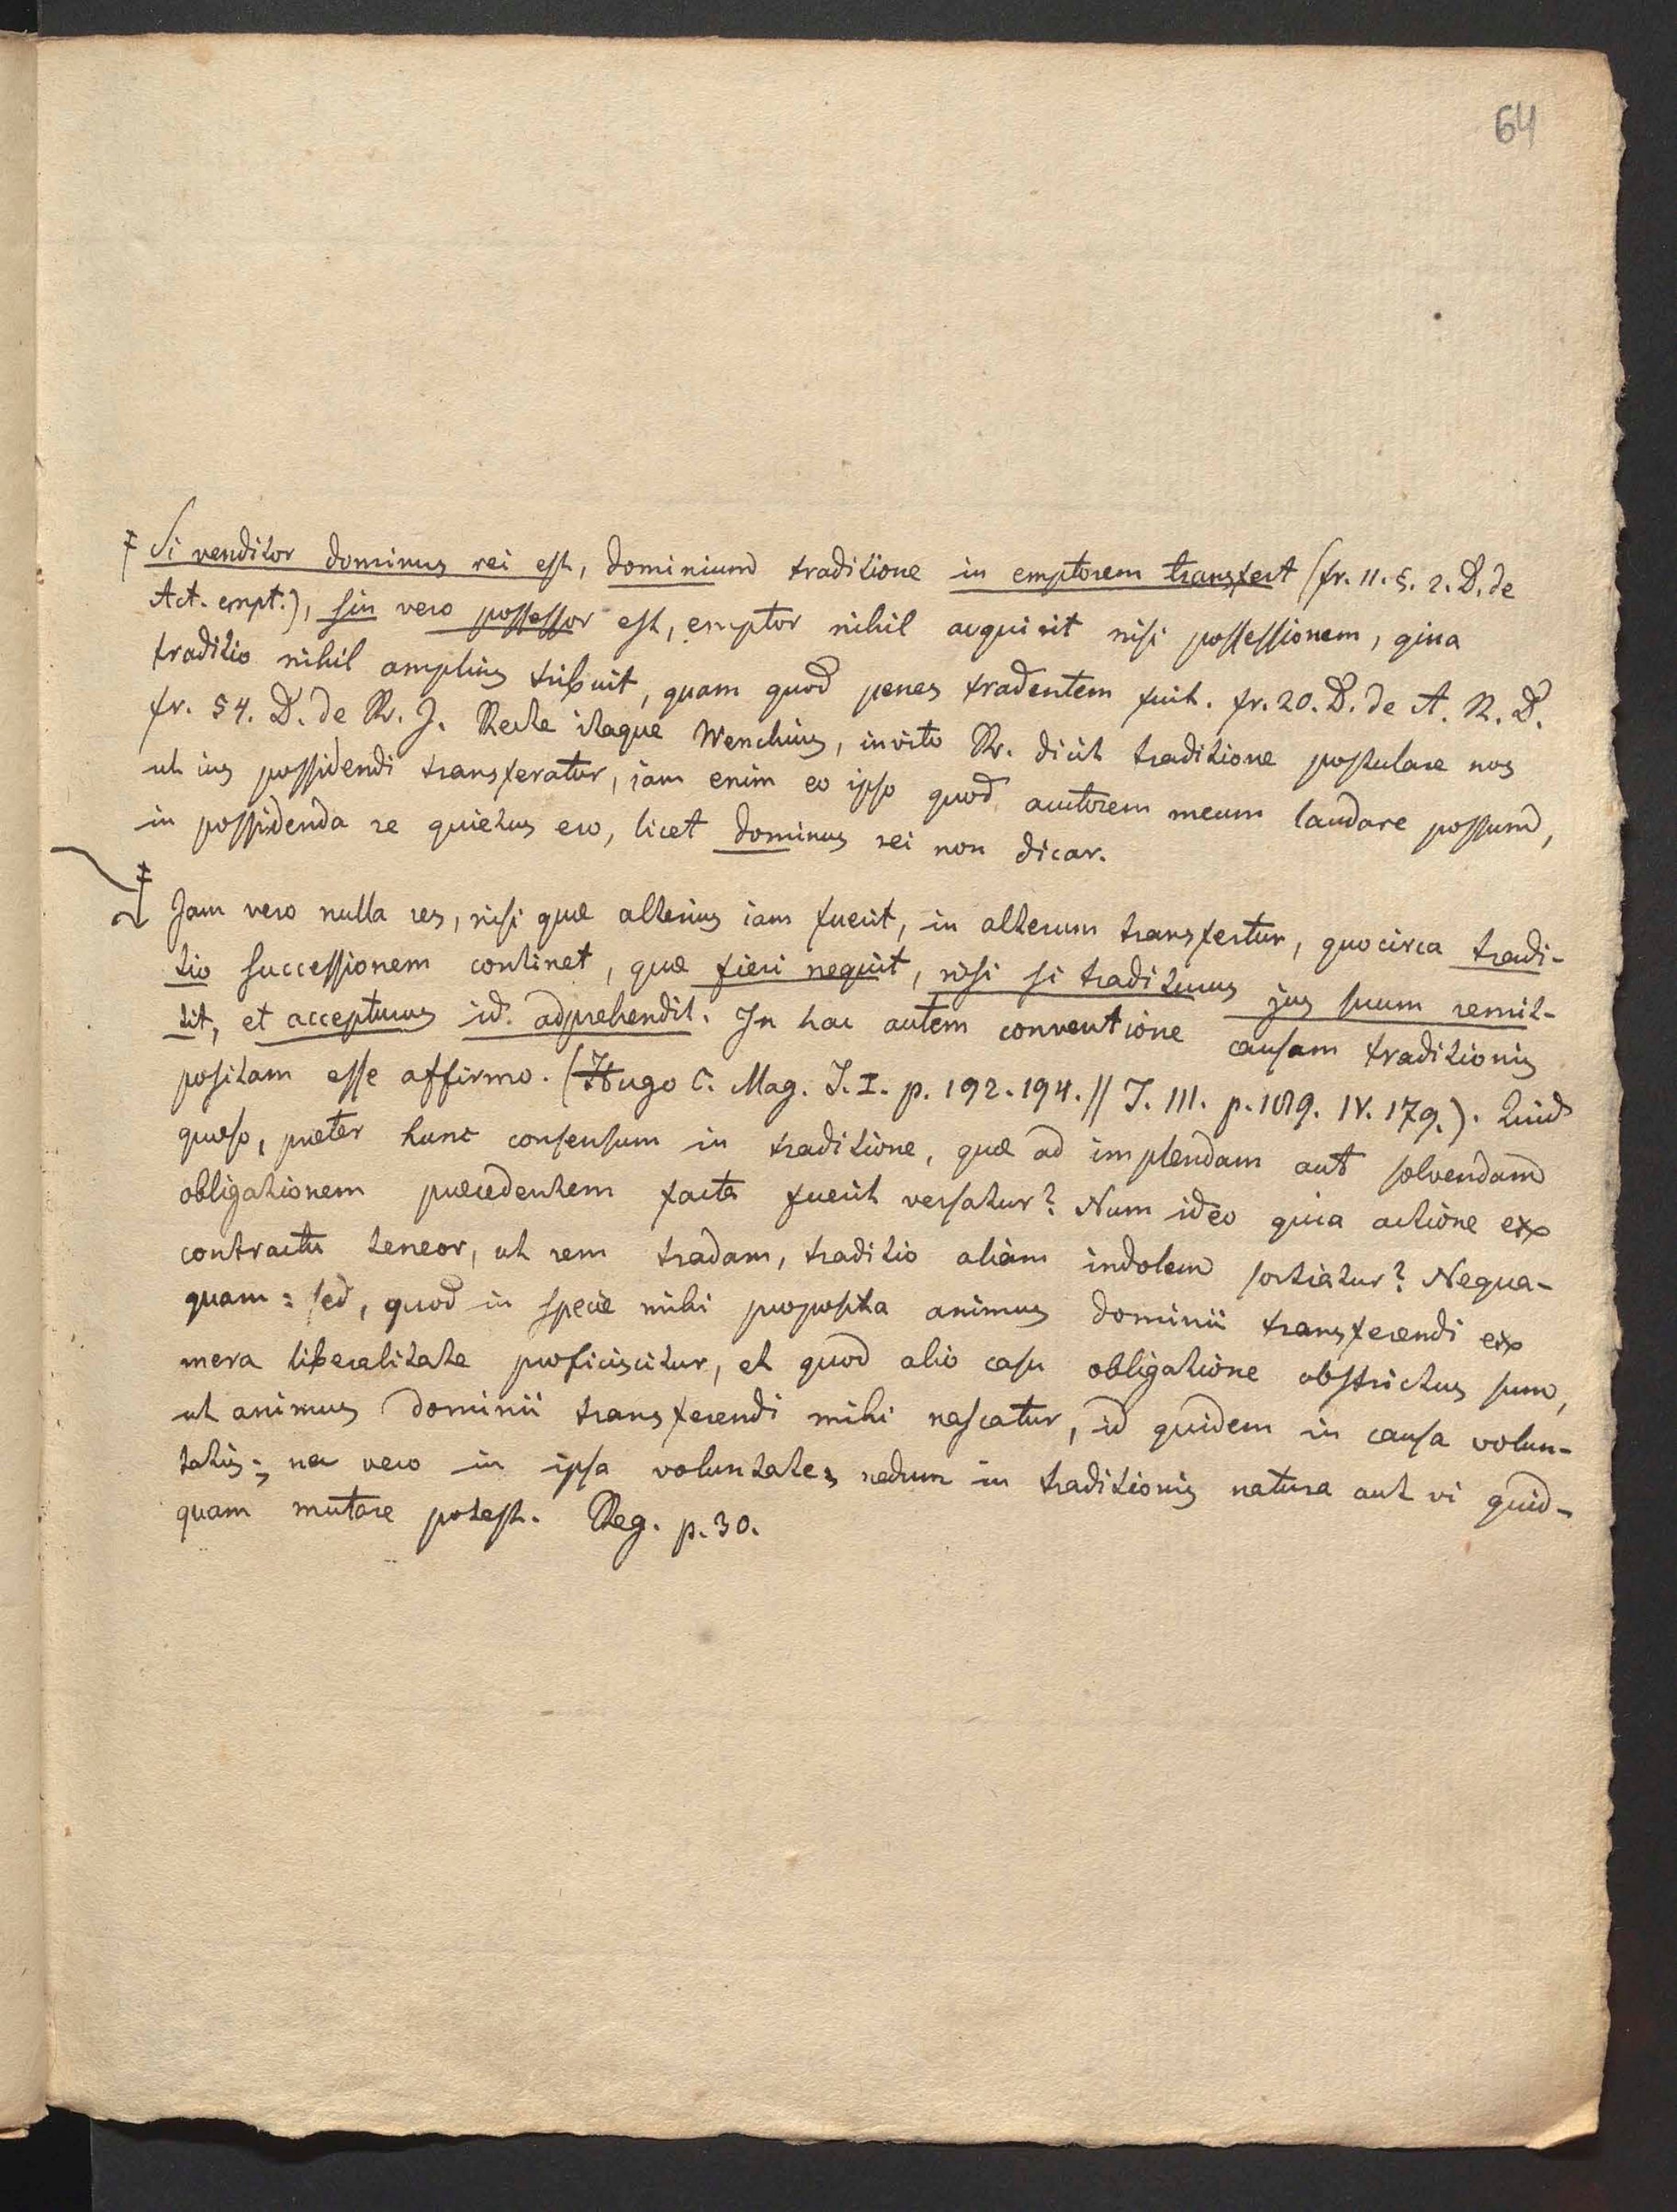 64
‡ Si venditor dominus rei est, dominium traditione in emptorem transfert (fr. 11. §. 2. D. de
Act. empt.), sin vero possessor est, emptor nihil acquirit nisi possessionem, quia
traditio nihil amplius tribuit, quam quod penes tradentem fuit. fr. 20. D. de A. R. D.
fr. 54. D. de R. J. Recte itaque Wenchius, invito R. dicit traditione postulare nos
ut ius possidendi transferatur, iam enim eo ipso quod auctorem meum laudare possum,
in possidenda re quietus ero, licet dominus rei non dicar.
‡ Jam vero nulla res, nisi quæ alterius iam fuerit, in alterum transfertur, quocirca tradi-
tio successionem continet, quæ fieri nequit, nisi si traditurus jus suum remit-
tit, et accepturus id adprehendit. In hac autem conventione causam traditionis
positam esse affirmo. (Hugo C. Mag. T. I. p. 192. 194. // T. III. p. 189. IV. 179.). Quid
quæso, præter hunc consensum in traditione, quæ ad implendam aut solvendam
obligationem præcedentem facta fuerit versatur? Num ideo quia actione ex
contractu teneor, ut rem tradam, traditio aliam indolem sortiatur? Nequa-
quam: sed, quod in specie mihi proposita animus dominii transferendi ex
mera liberalitate proficiscitur, et quod alio casu obligatione obstrictus sum,
ut animus dominii transferendi mihi nascatur, id quidem in causa volun-
tatis; nec vero in ipsa voluntate, nedum in traditionis natura aut vi quid-
quam mutare potest. Reg. p. 30.